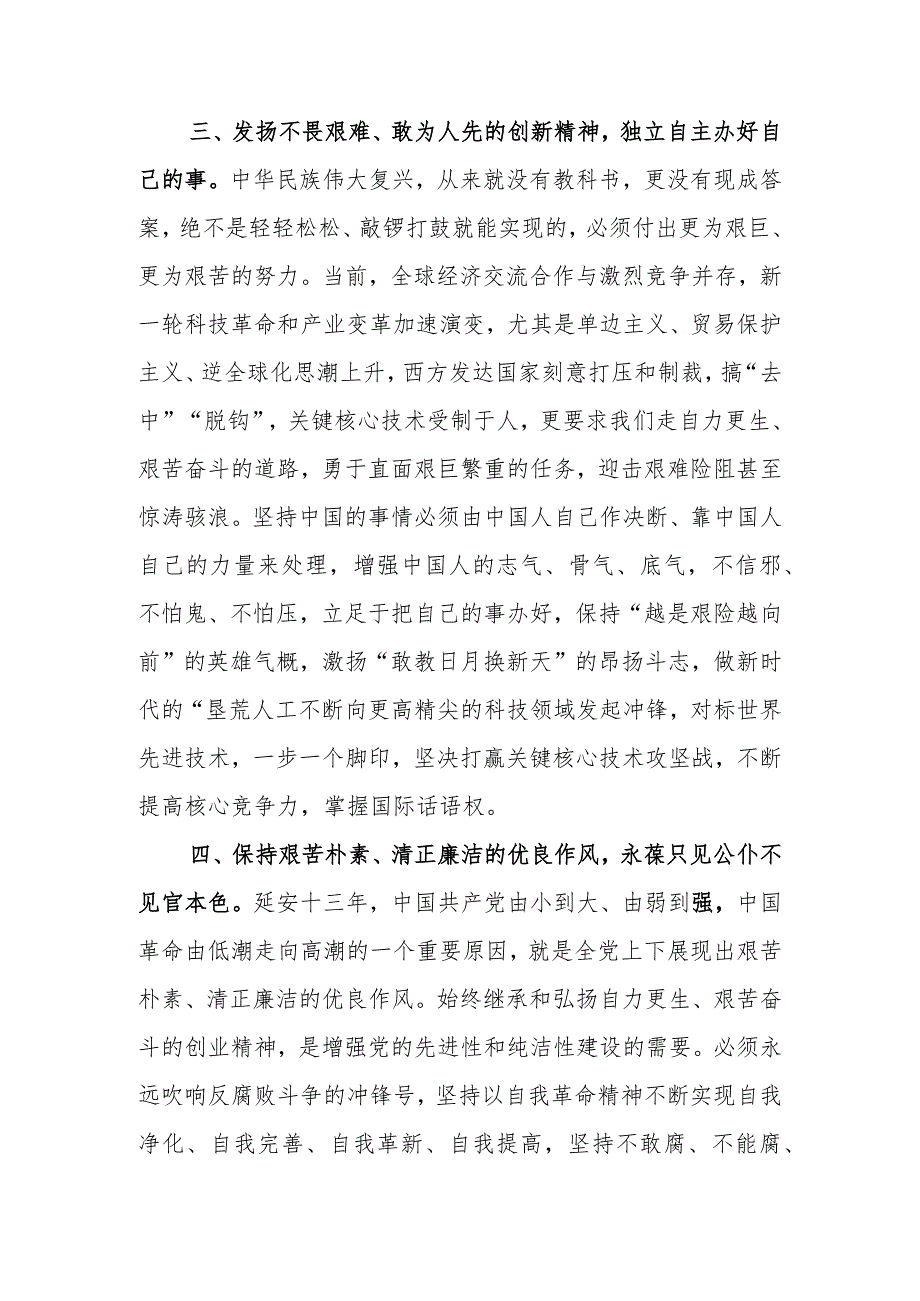 三、发扬不畏艰难、敢为人先的创新精神，独立自主办好自
己的事。中华民族伟大复兴，从来就没有教科书，更没有现成答
案，绝不是轻轻松松、敲锣打鼓就能实现的，必须付出更为艰巨、
更为艰苦的努力。当前，全球经济交流合作与激烈竞争并存，新
一轮科技革命和产业变革加速演变，尤其是单边主义、贸易保护
主义、逆全球化思潮上升，西方发达国家刻意打压和制裁，搞“去
中”“脱钩”，关键核心技术受制于人，更要求我们走自力更生、
艰苦奋斗的道路，勇于直面艰巨繁重的任务，迎击艰难险阻甚至
惊涛骇浪。坚持中国的事情必须由中国人自己作决断、靠中国人
自己的力量来处理，增强中国人的志气、骨气、底气，不信邪、
不怕鬼、不怕压，立足于把自己的事办好，保持“越是艰险越向
前”的英雄气概，激扬“敢教日月换新天”的昂扬斗志，做新时
代的“垦荒人工不断向更高精尖的科技领域发起冲锋，对标世界
先进技术，一步一个脚印，坚决打赢关键核心技术攻坚战，不断
提高核心竞争力，掌握国际话语权。
四、保持艰苦朴素、清正廉洁的优良作风，永葆只见公仆不
见官本色。延安十三年，中国共产党由小到大、由弱到强，中国
革命由低潮走向高潮的一个重要原因，就是全党上下展现出艰苦
朴素、清正廉洁的优良作风。始终继承和弘扬自力更生、艰苦奋
斗的创业精神，是增强党的先进性和纯洁性建设的需要。必须永
远吹响反腐败斗争的冲锋号，坚持以自我革命精神不断实现自我
净化、自我完善、自我革新、自我提高，坚持不敢腐、不能腐、